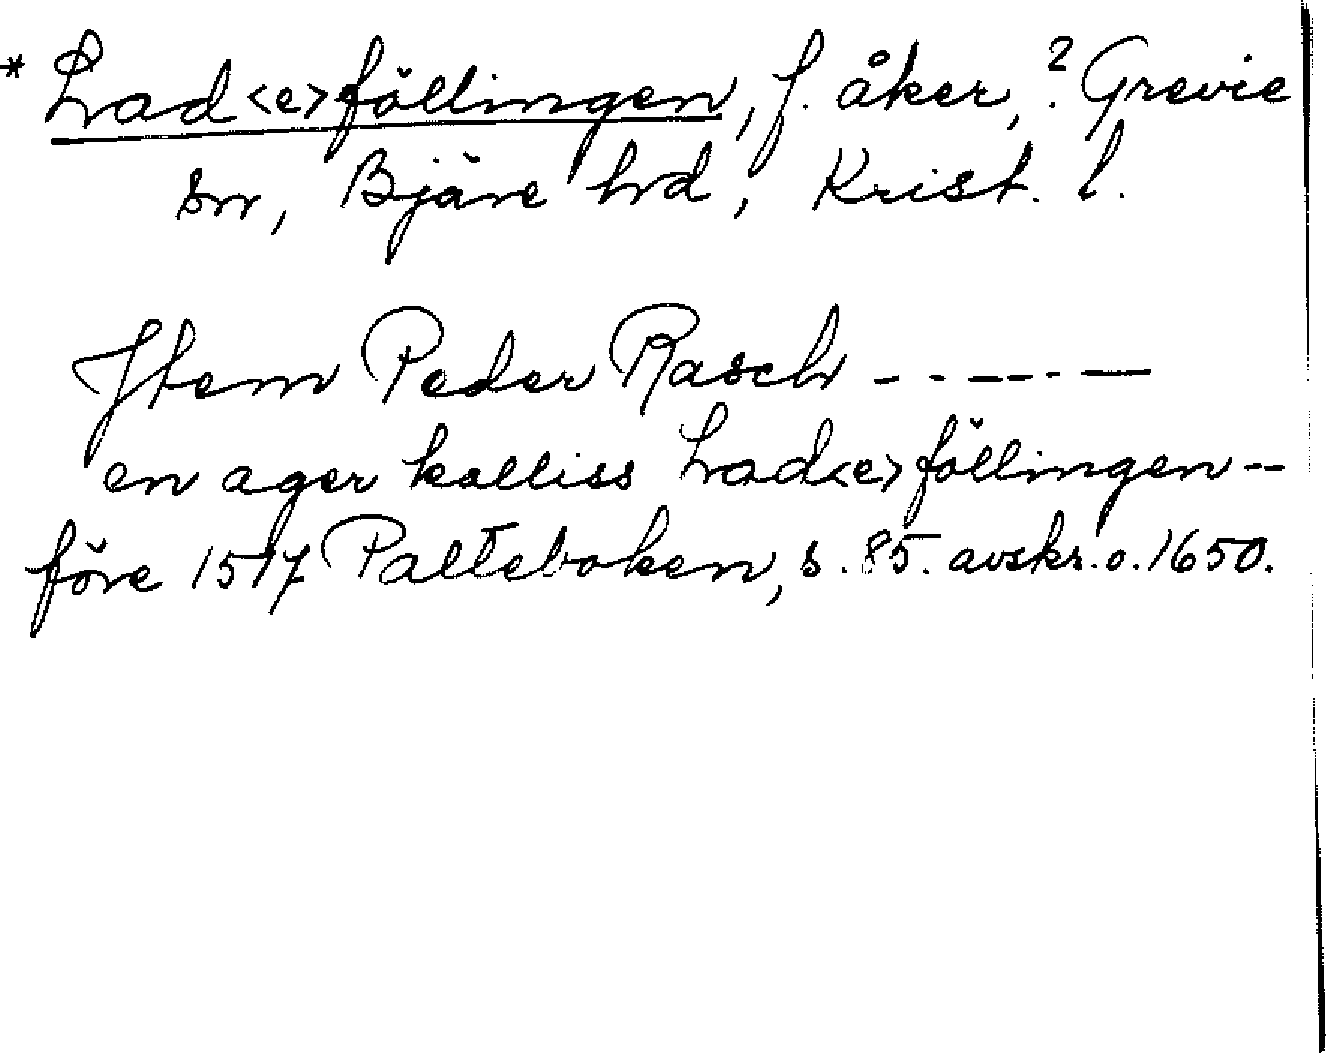 * Lad<e>föllingen, f. åker, ? Grevie
sn, Bjäre hd, Krist. l.
Jtem Peder Rasch - - - - - -
en ager kalliss Lad<e>föllingen --
före 1517 Palteboken, s. 85. avskr. o. 1650.